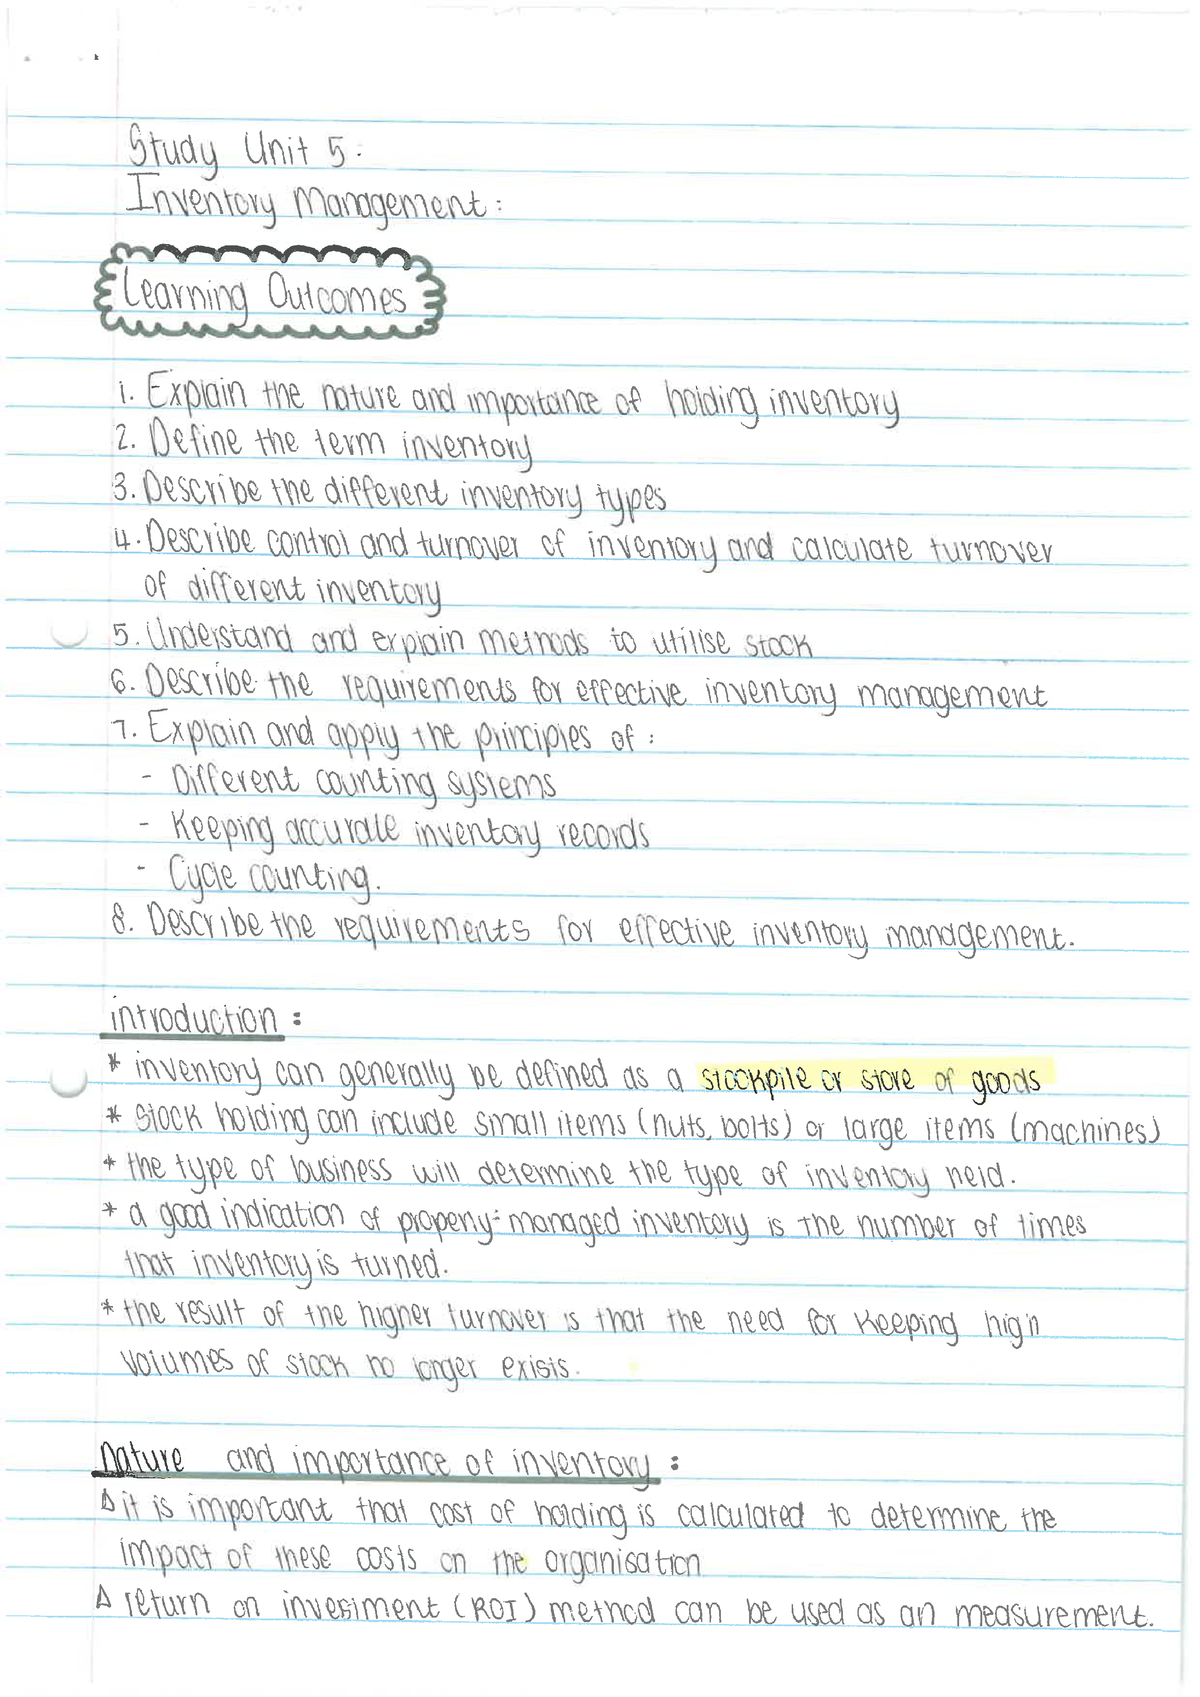 Study Unit 5:
Inventory Management:
Learning Outcomes
1. Explain the nature and importance of holding inventory
2. Define the term inventory
3. Describe the different inventory types
4. Describe control and turnover of inventory and calculate turnover
of different inventory
5. Understand and explain methods to utilise stock
6. Describe the requirements for effective inventory management
7. Explain and apply the principles of :
- Different counting systems
- Keeping accurate inventory records
- Cycle counting.
8. Describe the requirements for effective inventory management.
introduction :
* inventory can generally be defined as a stockpile or store of goods
* Stock holding can include small items (nuts, bolts) or large items (machines)
* the type of business will determine the type of inventory held.
* a good indication of properly-managed inventory is the number of times
that inventory is turned.
* the result of the higher turnover is that the need for keeping high
volumes of stock no longer exists.
Nature and importance of inventory :
△ it is important that cost of holding is calculated to determine the
impact of these costs on the organisation
△ return on investment (ROI) method can be used as an measurement.